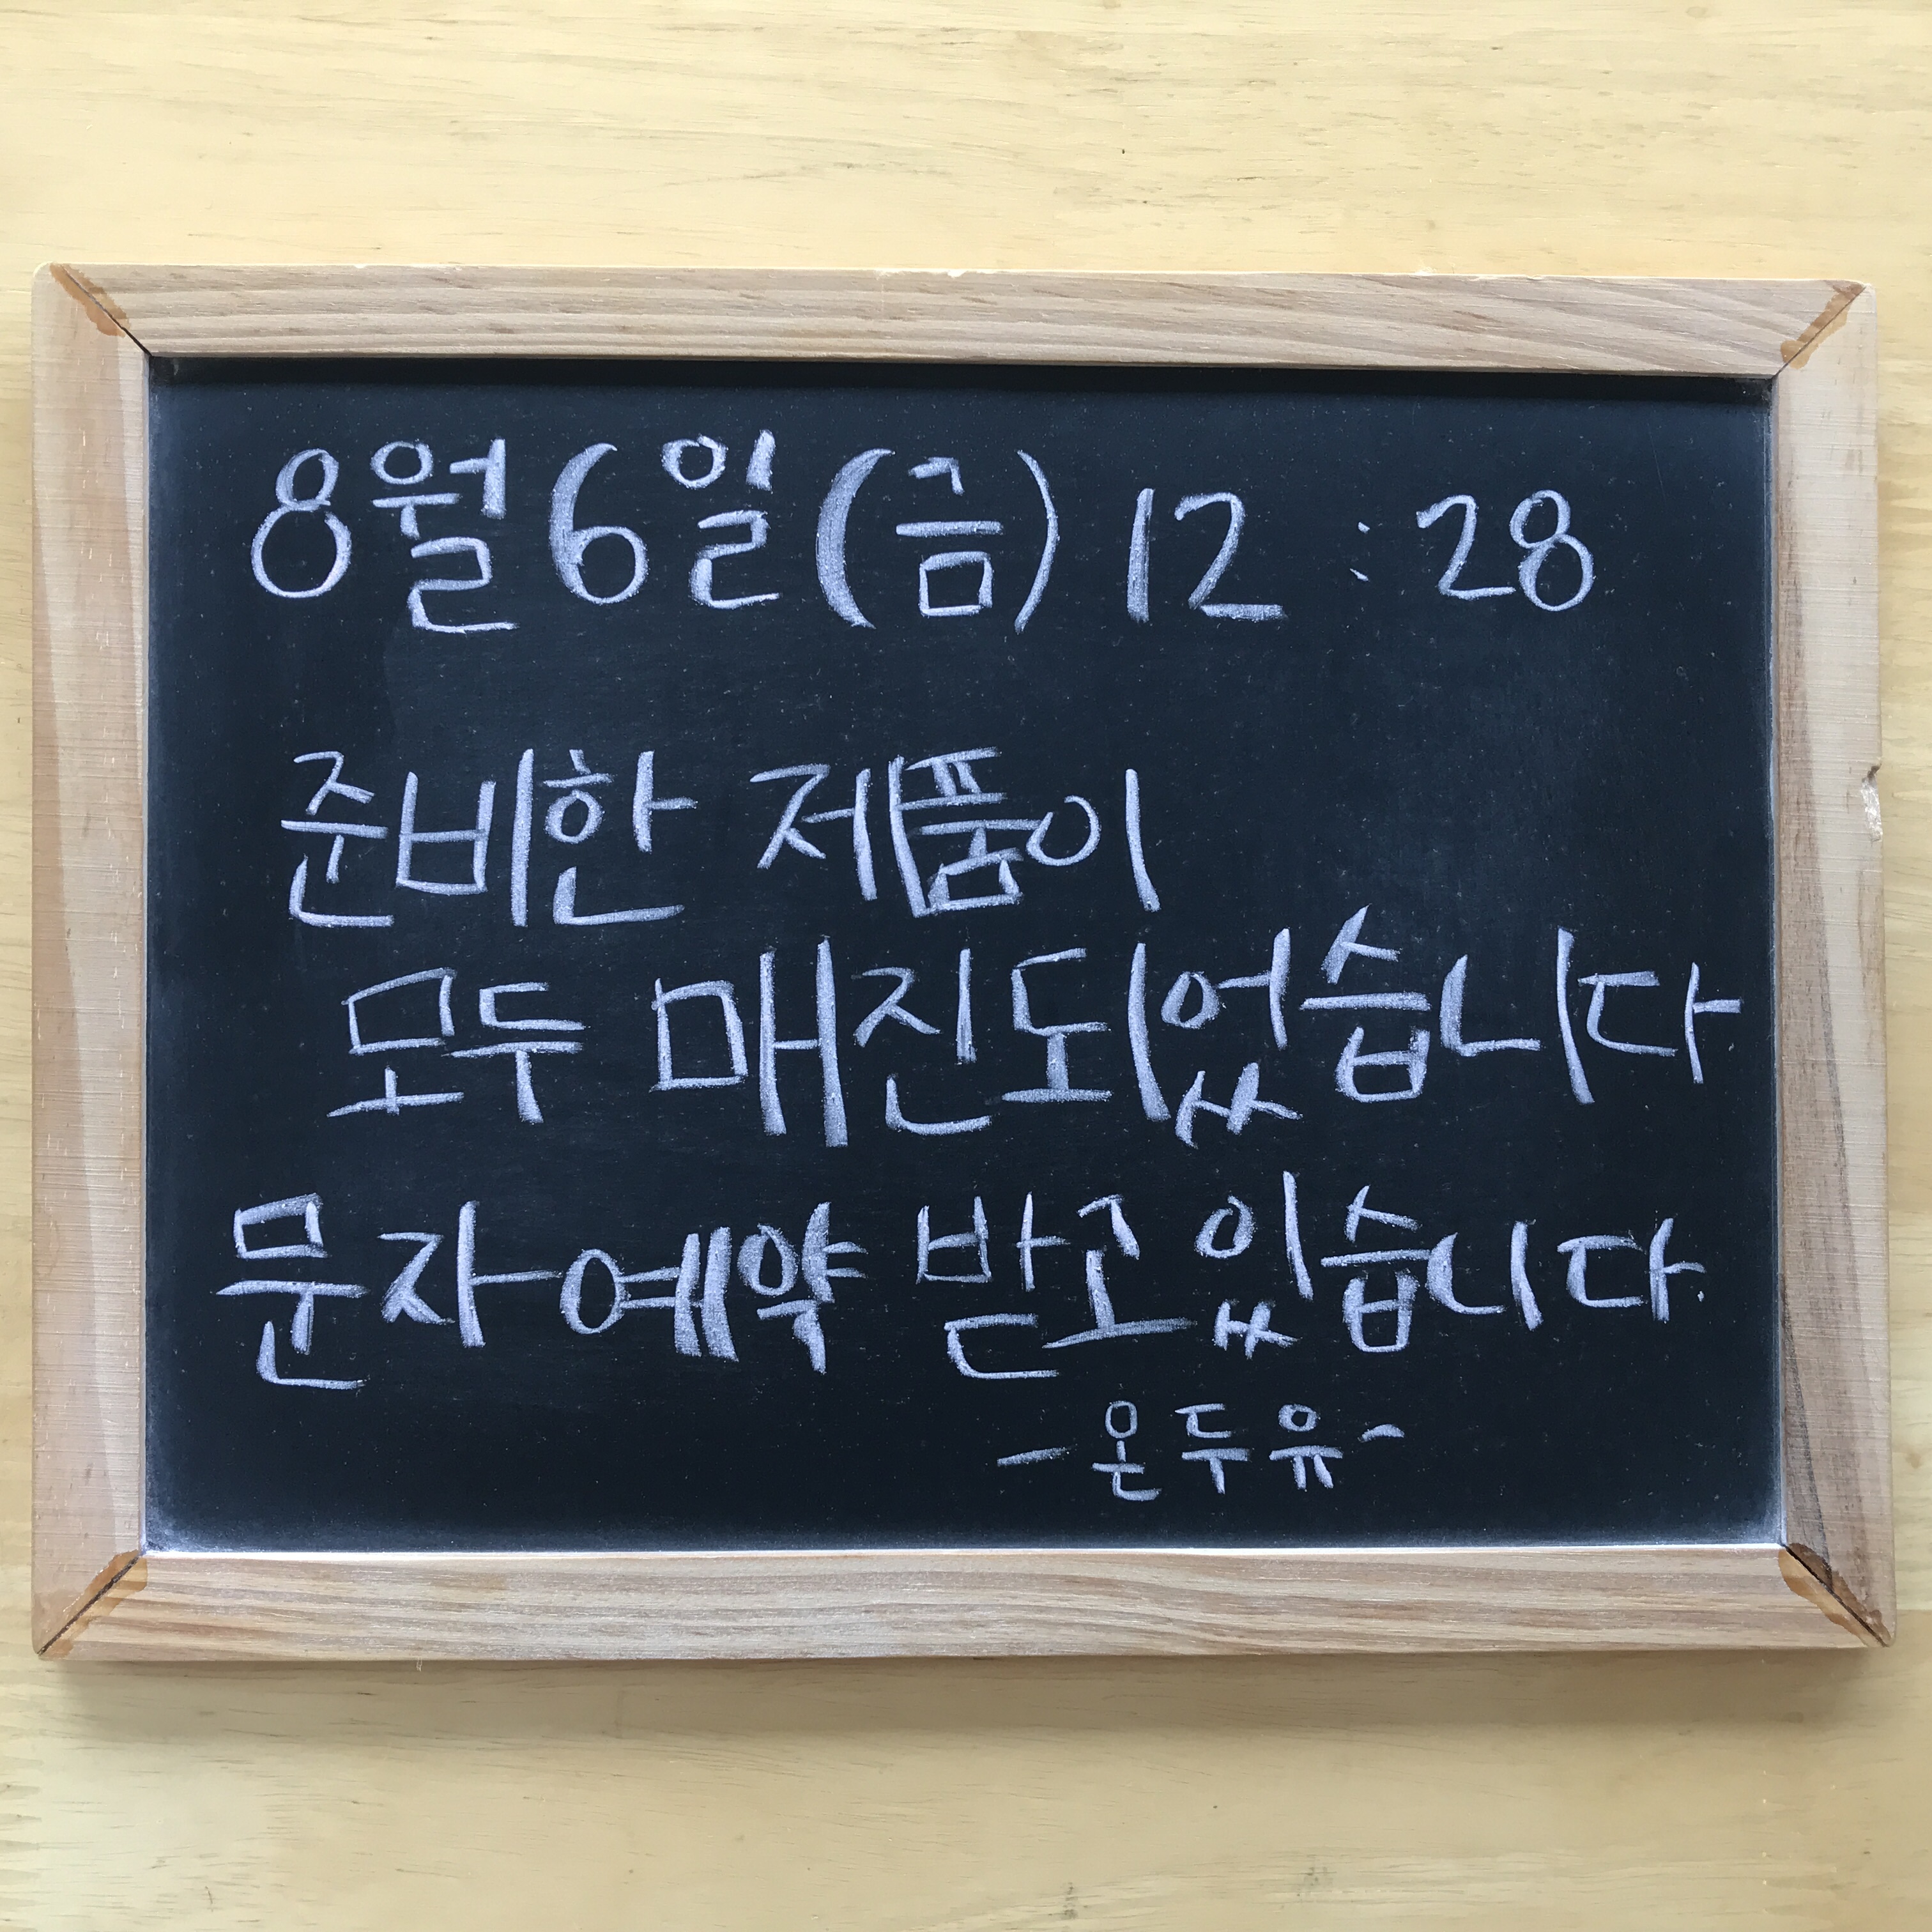 8월 6일 (금) 12 : 28
준비한 제품이
모두 매진되었습니다
문자예약 받고있습니다.
- 온두유 -